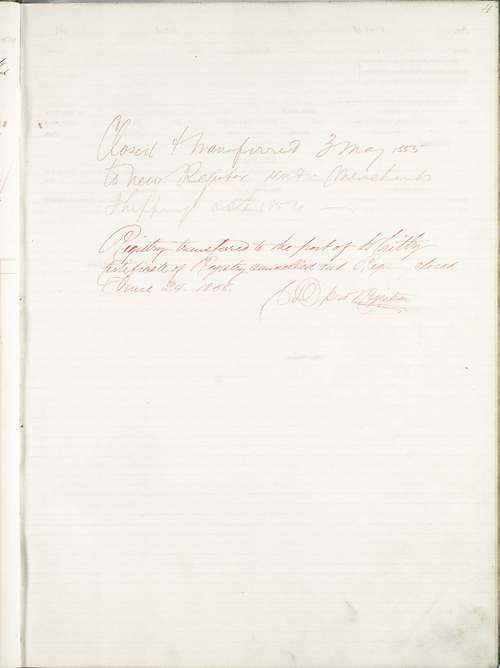 4
Closed & transferred 3 May 1855
to new Register under Merchant
Shipping Act 1854
Registry transferred to the port of Whitby
Certificate of Registry cancelled and Reg closed
June 24.
Registrar